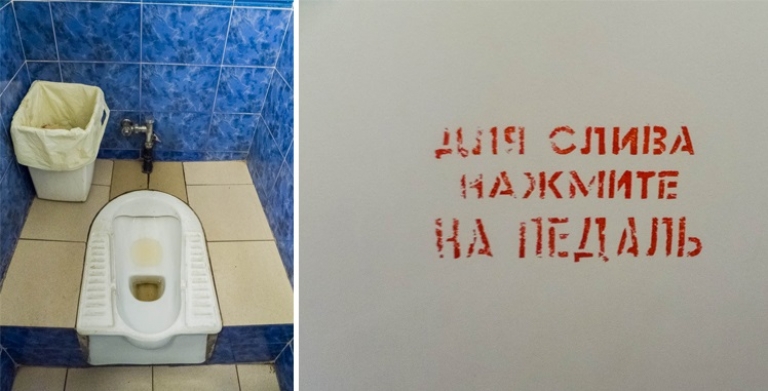 ДЛЯ СЛИВА
НАЖМИТЕ
НА ПЕДАЛЬ